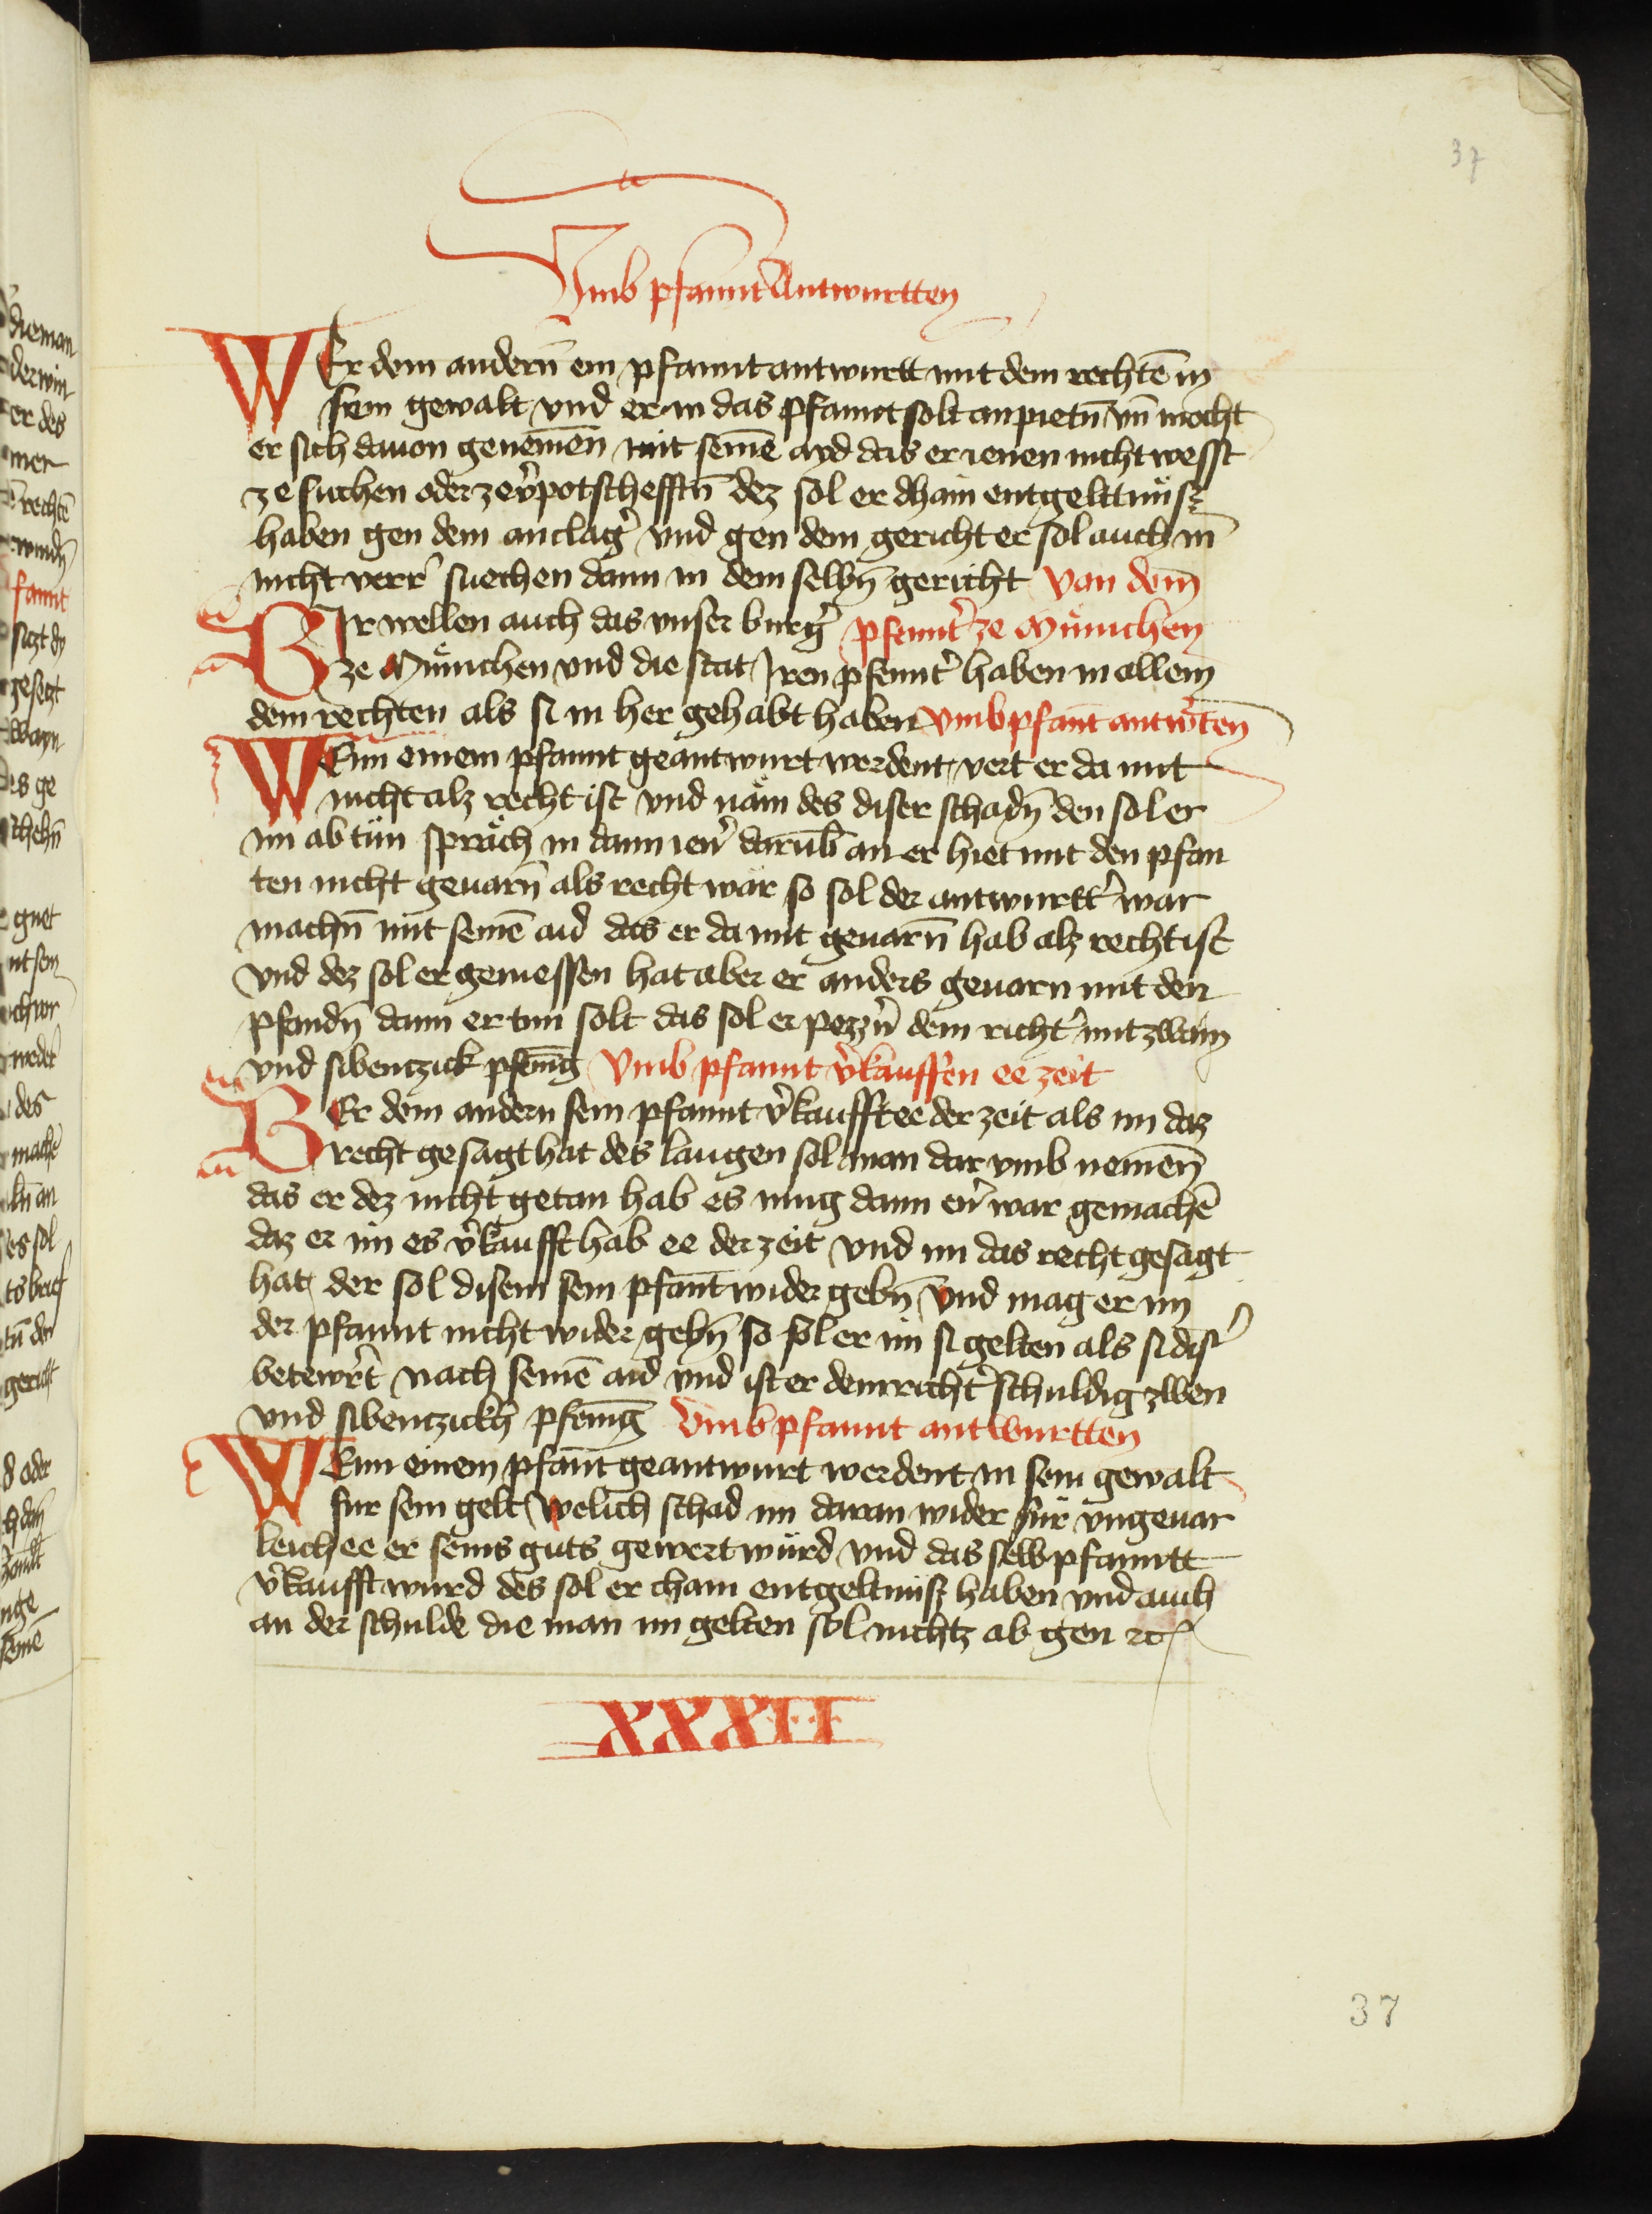 37
Vmb pfannt Antwurtten
WEr dem andern̄ ein pfannt antwurtt mit dem rechtē in
sein gewalt vnd er in das pfannt solt anpietn̄ vn̄ mocht
er sich dauon genemen̄ mit seinē ayd das er ienen nicht wesst
ze suchen oder ze v̉potschefftn̄ dez sol er dhain entgelttnüsz
haben gen dem anclag̉ vnd gen dem gericht er sol auch in̄
nicht verr̉ suechen dann in dem selbn̄ gericht Von dem
WIr wellen auch das vnser burg̉ pfennt̉ ze Münichen
ze Münichen vnd die stat Iren pfennt̉ haben in allem
dem rechten als si in her gehabt haben Vmb pfant antw̉ten
WEnn einem pfannt geantwurt werdent vert er da mit
nicht alz recht ist vnd näm des diser schadn̄ den sol er
im ab tün spräch in dann ien̉ darūb an er hiet mit den pfan
ten nicht geuarn̄ als recht wär so sol der antwurtt̉ war
machn̄ mit seinē aid das er da mit geuarn̄ hab alz recht ist
vnd dez sol er geniessen hat aber er anders geuarn mit den
pfandn̄ dann er tun solt das sol er pezzn̉ dem richt̉ mit zwain
vnd sibentzick pfenīg Vmb pfannt v̉kauffen ee zeit
WEr dem andern sein pfannt v̉kaufft ee der zeit als im daz
recht gesagt hat des laugen sol man dar vmb nemen̄
das er dez nicht getan hab es mug dann en̉ war gemachē
daz er im es v̉kaufft hab ee der zeit vnd im das recht gesagt
hat der sol disem sein pfant wider gebn̄ Vnd mag er im
der pfannt nicht wider gebn̄ so sol er im si gelten als si dis̉
betewr̉t nach seinē aid vnd ist er dem richt̉ schuldig zwen
vnd sibentzickh pfenīg Vmb pfannt antwurtten
WEnn einem pfant geantwurt werdent in sein gewalt
für sein gelt Welich schad im daran wider für vngeuar
leich ee er seins guts gewert würd vnd das selb pfanntt
v̉kaufft wurd des sol er chain entgeltnüsz haben vnd auch
an der schulde die man im gelten sol nichtz ab gen etc
XXXII
37